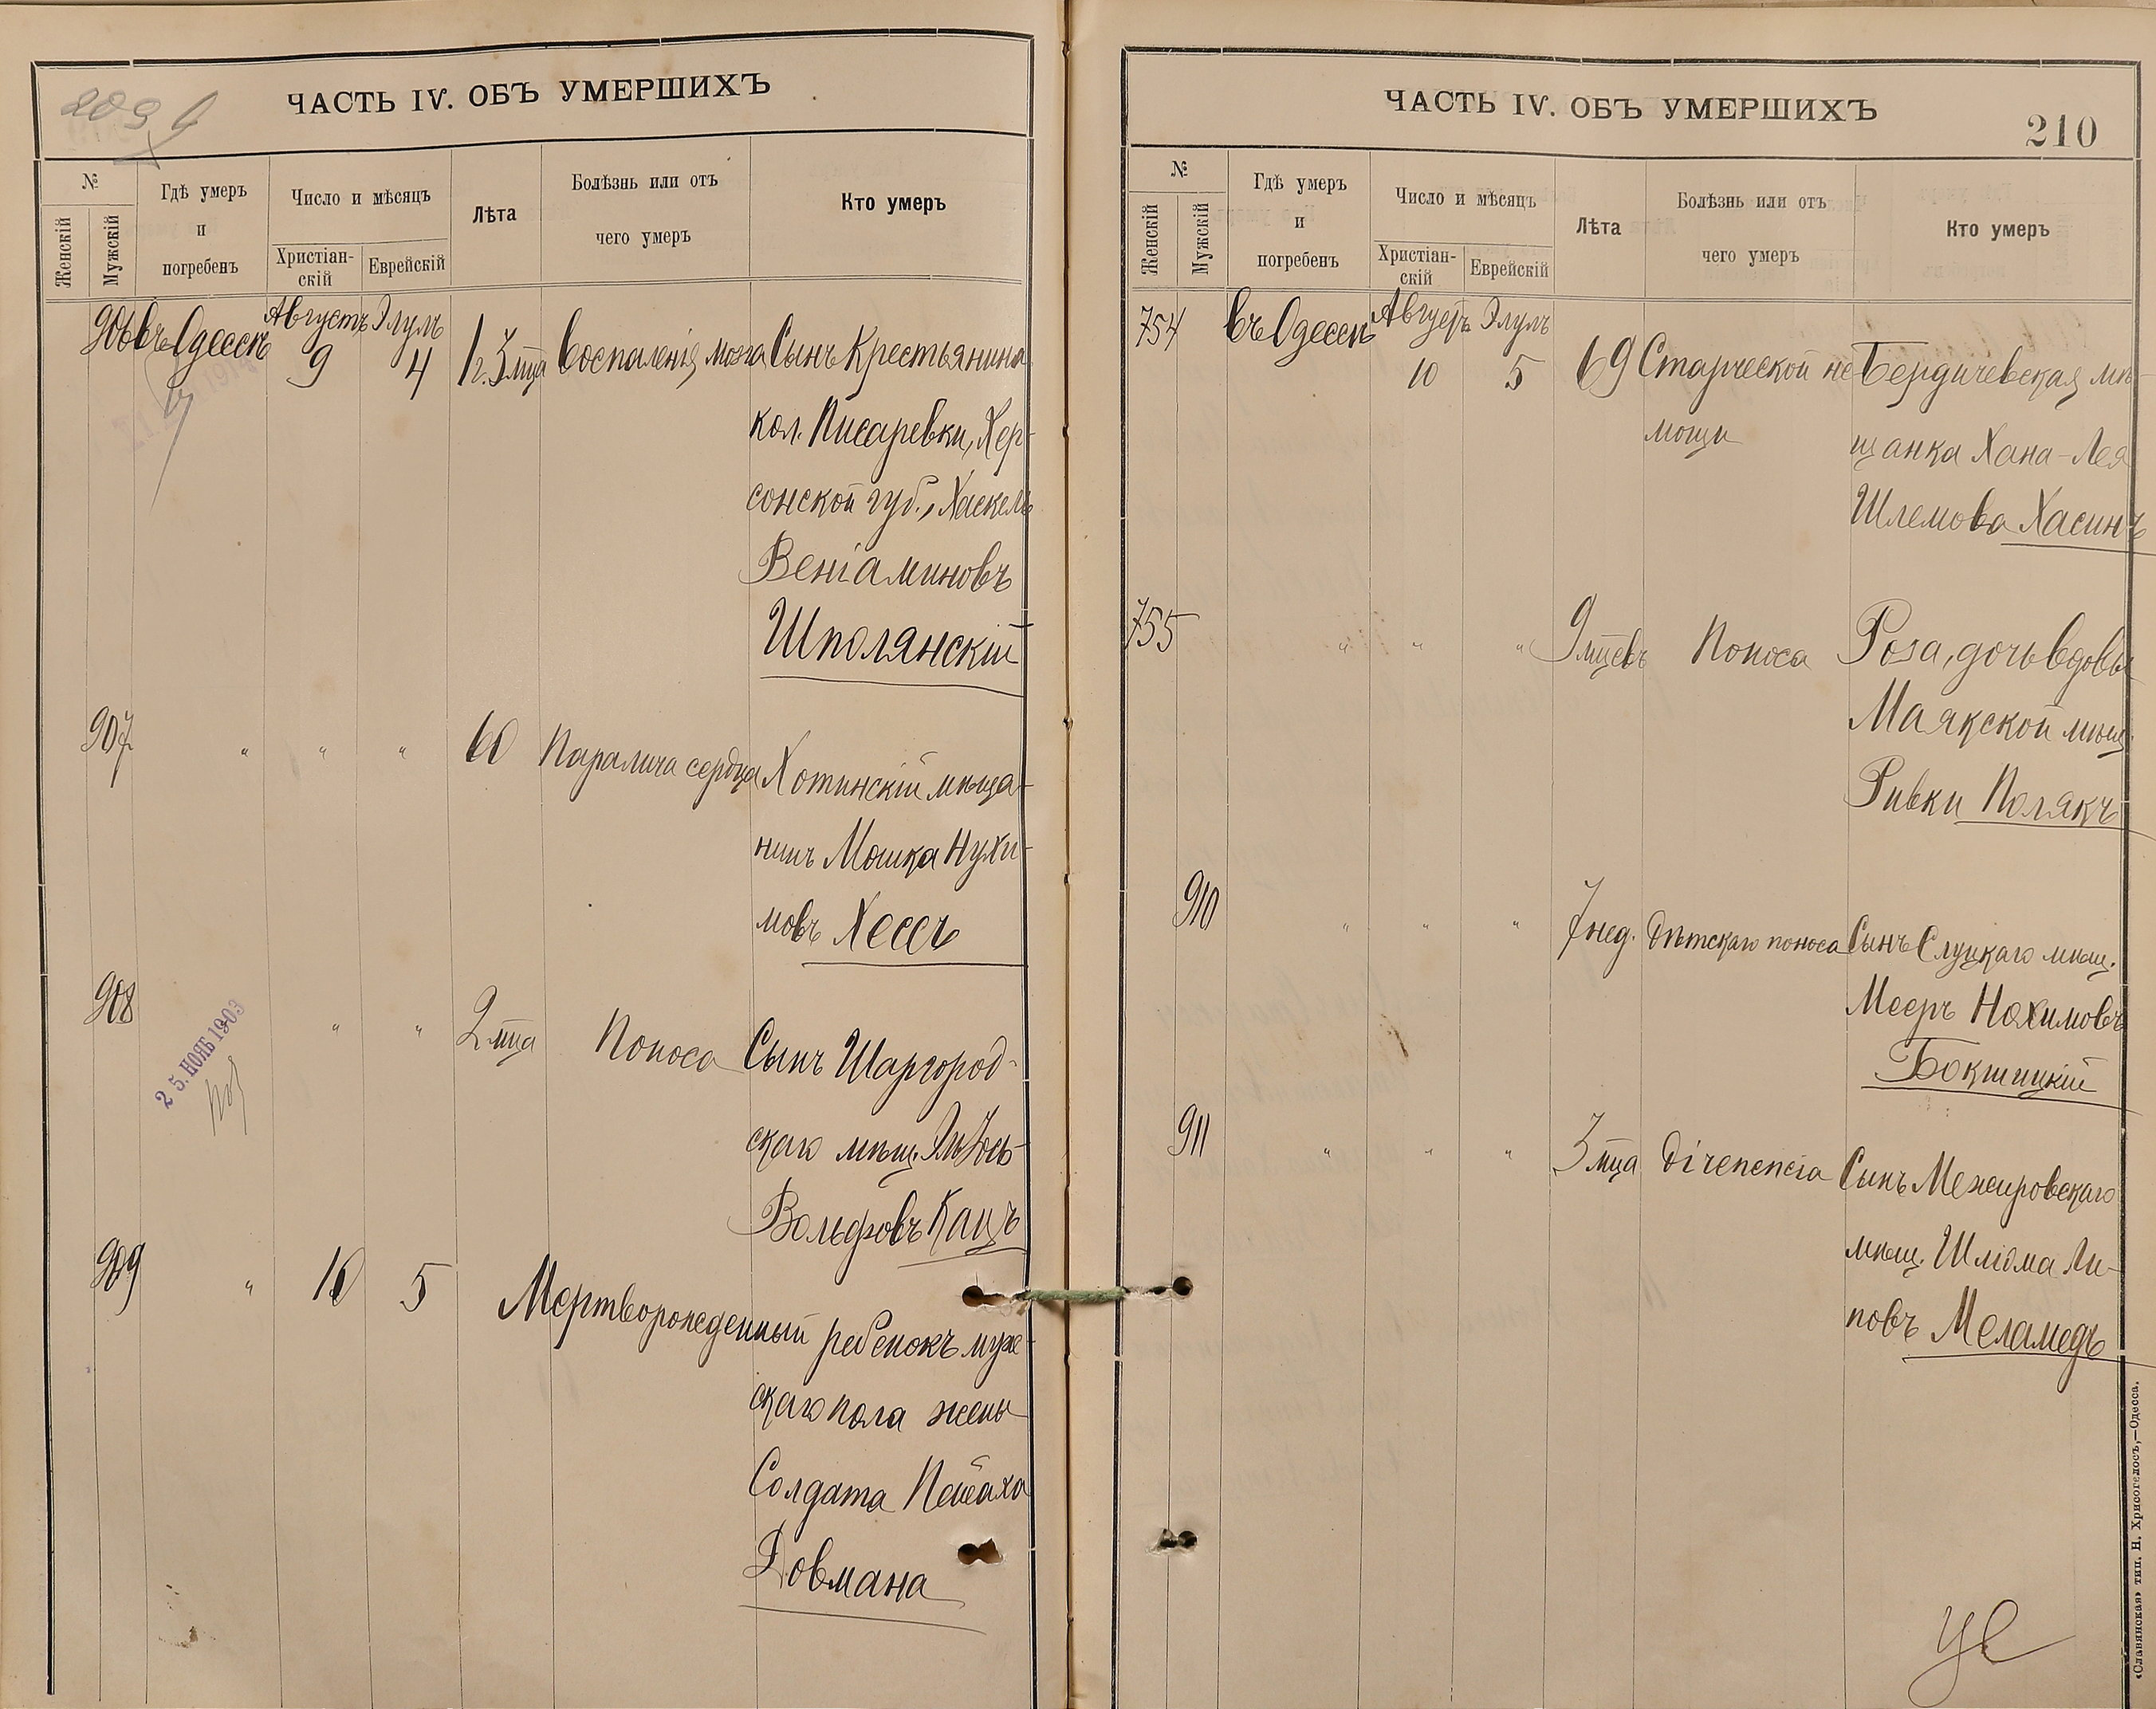 209
ЧАСТЬ IV. ОБЪ УМЕРШИХЪ
№
Женскій
Мужскій
Гдѣ умеръ
и
погребенъ
Число и мѣсяцъ
Христіан-
скій
Еврейскій
Лѣта
Болѣзнь или отъ
чего умеръ
Кто умеръ
906 въ Одессѣ Августъ 9 Элулъ 4 1 г. 3 мца Воспаленія мозга Сынъ Крестьянина
кол. Писаревки, Хер-
сонской губ., Хаскель
Веніаминовъ
Шполянскій
907 " " " 60 Паралича сердца Хотинскій мѣща-
нинъ Мошка Нухи-
мовъ Хессъ
908 " " 2 мца Поноса Сынъ Шаргород-
скаго мѣщ.
Вольфовъ Кацъ
25. НОЯБ 1903
909 " 10 5 Мертворожденный ребенокъ муж-
скаго пола жены
Солдата Пейсаха
Довмана
ЧАСТЬ IV. ОБЪ УМЕРШИХЪ
210
№
Женскій
Мужскій
Гдѣ умеръ
и
погребенъ
Число и мѣсяцъ
Христіан-
скій
Еврейскій
Лѣта
Болѣзнь или отъ
чего умеръ
Кто умеръ
754 въ Одессѣ Августъ 10 Элулъ 5 69 Старческой не- Бердичевская мѣ-
мощи щанка Хана-Лея
Шлемова Хасинъ
755 " " " 9 мцевъ Поноса Роза, дочь вдовы
Маякской мѣщ.
Ривки Полякъ
910 " " " 7 нед. Дѣтскаго поноса Сынъ Слуцкаго мѣщ.
Мееръ Нахимовъ
Бокшицкій
911 " " " 3 мца Сынъ Межировскаго
мѣщ. Шліома Ли-
повъ Меламедъ
«Славянская» тип. Н. Хрисогелосъ,—Одесса.